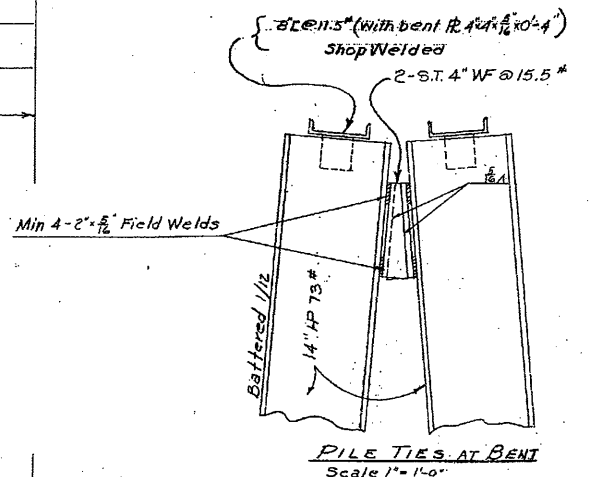 8"[@11.5# (with bent PL 4"x4"x5/16"x0'-4")
Shop Welded
2-S.T. 4" WF @ 15.5#
5/16
Min 4-2"x5/16" Field Welds
Battered 1/12
14" HP 73#
PILE TIES AT BENT
Scale 1"=1'-0"